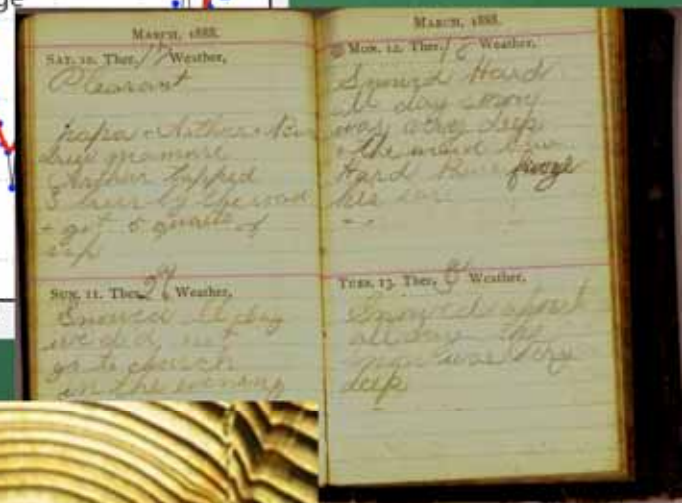 ge
MARCH, 1888.
SAT. 10. Ther. Weather,
Pleasant
papa + Arthur +
Arthur tapped
5 trees by the road
+ got 5 quarts of
sap
SUN. 11. Ther. 29 Weather,
Snowed all day
we did not
go to church
in the evening
MARCH, 1888.
MON. 12. Ther. Weather,
Snowed Hard
all day snow
was very deep
+ the wind blew
Hard froze
his ear
TUES. 13. Ther. 8 Weather,
Snowed about
all day the
snow was very
deep